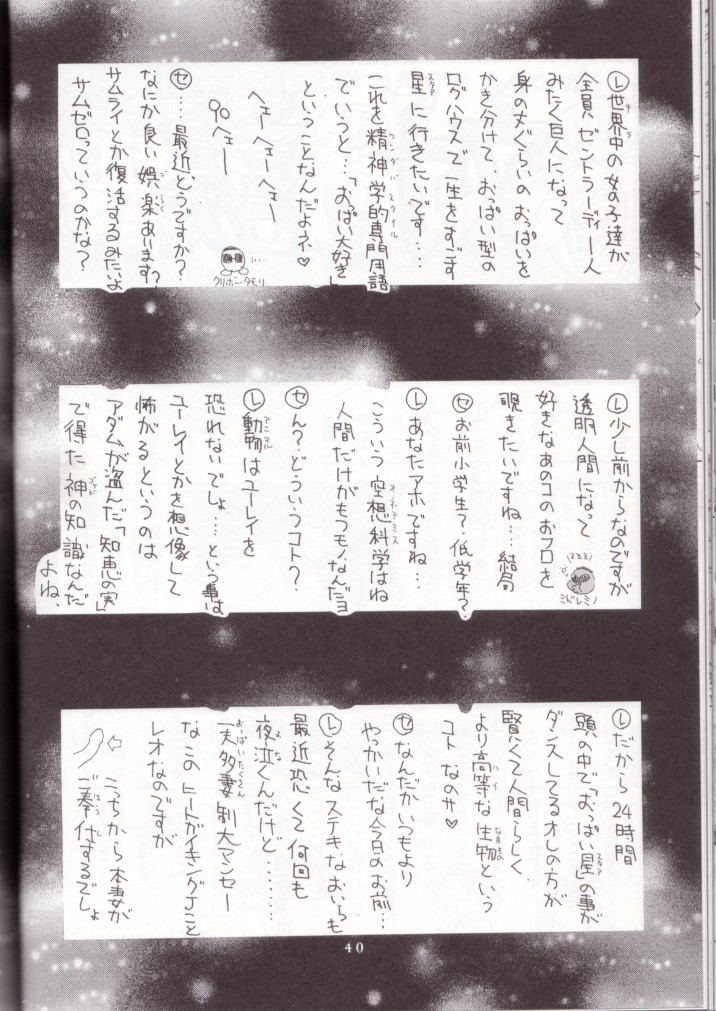 Ⓛ世界中の女の子達が
全員ゼントラーディー人
みたく巨人になって
身の丈ぐらいのおっぱいを
かき分けて、おっぱい型の
ログハウスで一生をすごす
星に行きたいです…
これを精神学的専門用語
でいうと…「おっぱい大好き」
ということなんだよネ♡
ヘェーヘェーヘェー
90ヘェー
クリボータモリ
㋝…最近どうですか?
なにか良い娯楽あります?
サムライとか復活するみたいよ
サムゼロっていうのかな?
Ⓛ少し前からなのですが
透明人間になって
好きなあのコのおフロを
覗きたいですね…結局
ミドレミノ
㋝お前小学生?低学年?
Ⓛあなたアホですね…
こういう空想科学はね
人間だけがもつモノなんだヨ
㋝ん?どういうコト?
Ⓛ動物はユーレイを
恐れないでしょ…という事は
ユーレイとかを想像して
怖がるというのは
アダムが盗んだ「知恵の実」
で得た神の知識なんだ
よね、
Ⓛだから24時間
頭の中で「おっぱい星」の事が
ダンスしてるオレの方が
賢くて人間らしく
より高等な生物という
コトなのサ♡
㋝なんだかいつもより
やっかいだな今日のお前…
Ⓛそんなステキなおいらも
最近恐くて何回も
夜泣くんだけど………
一夫多妻制大マンセー
なこのヒートガイキングJこと
レオなのですが
こっちから本妻が
ご奉仕するでしょ
40